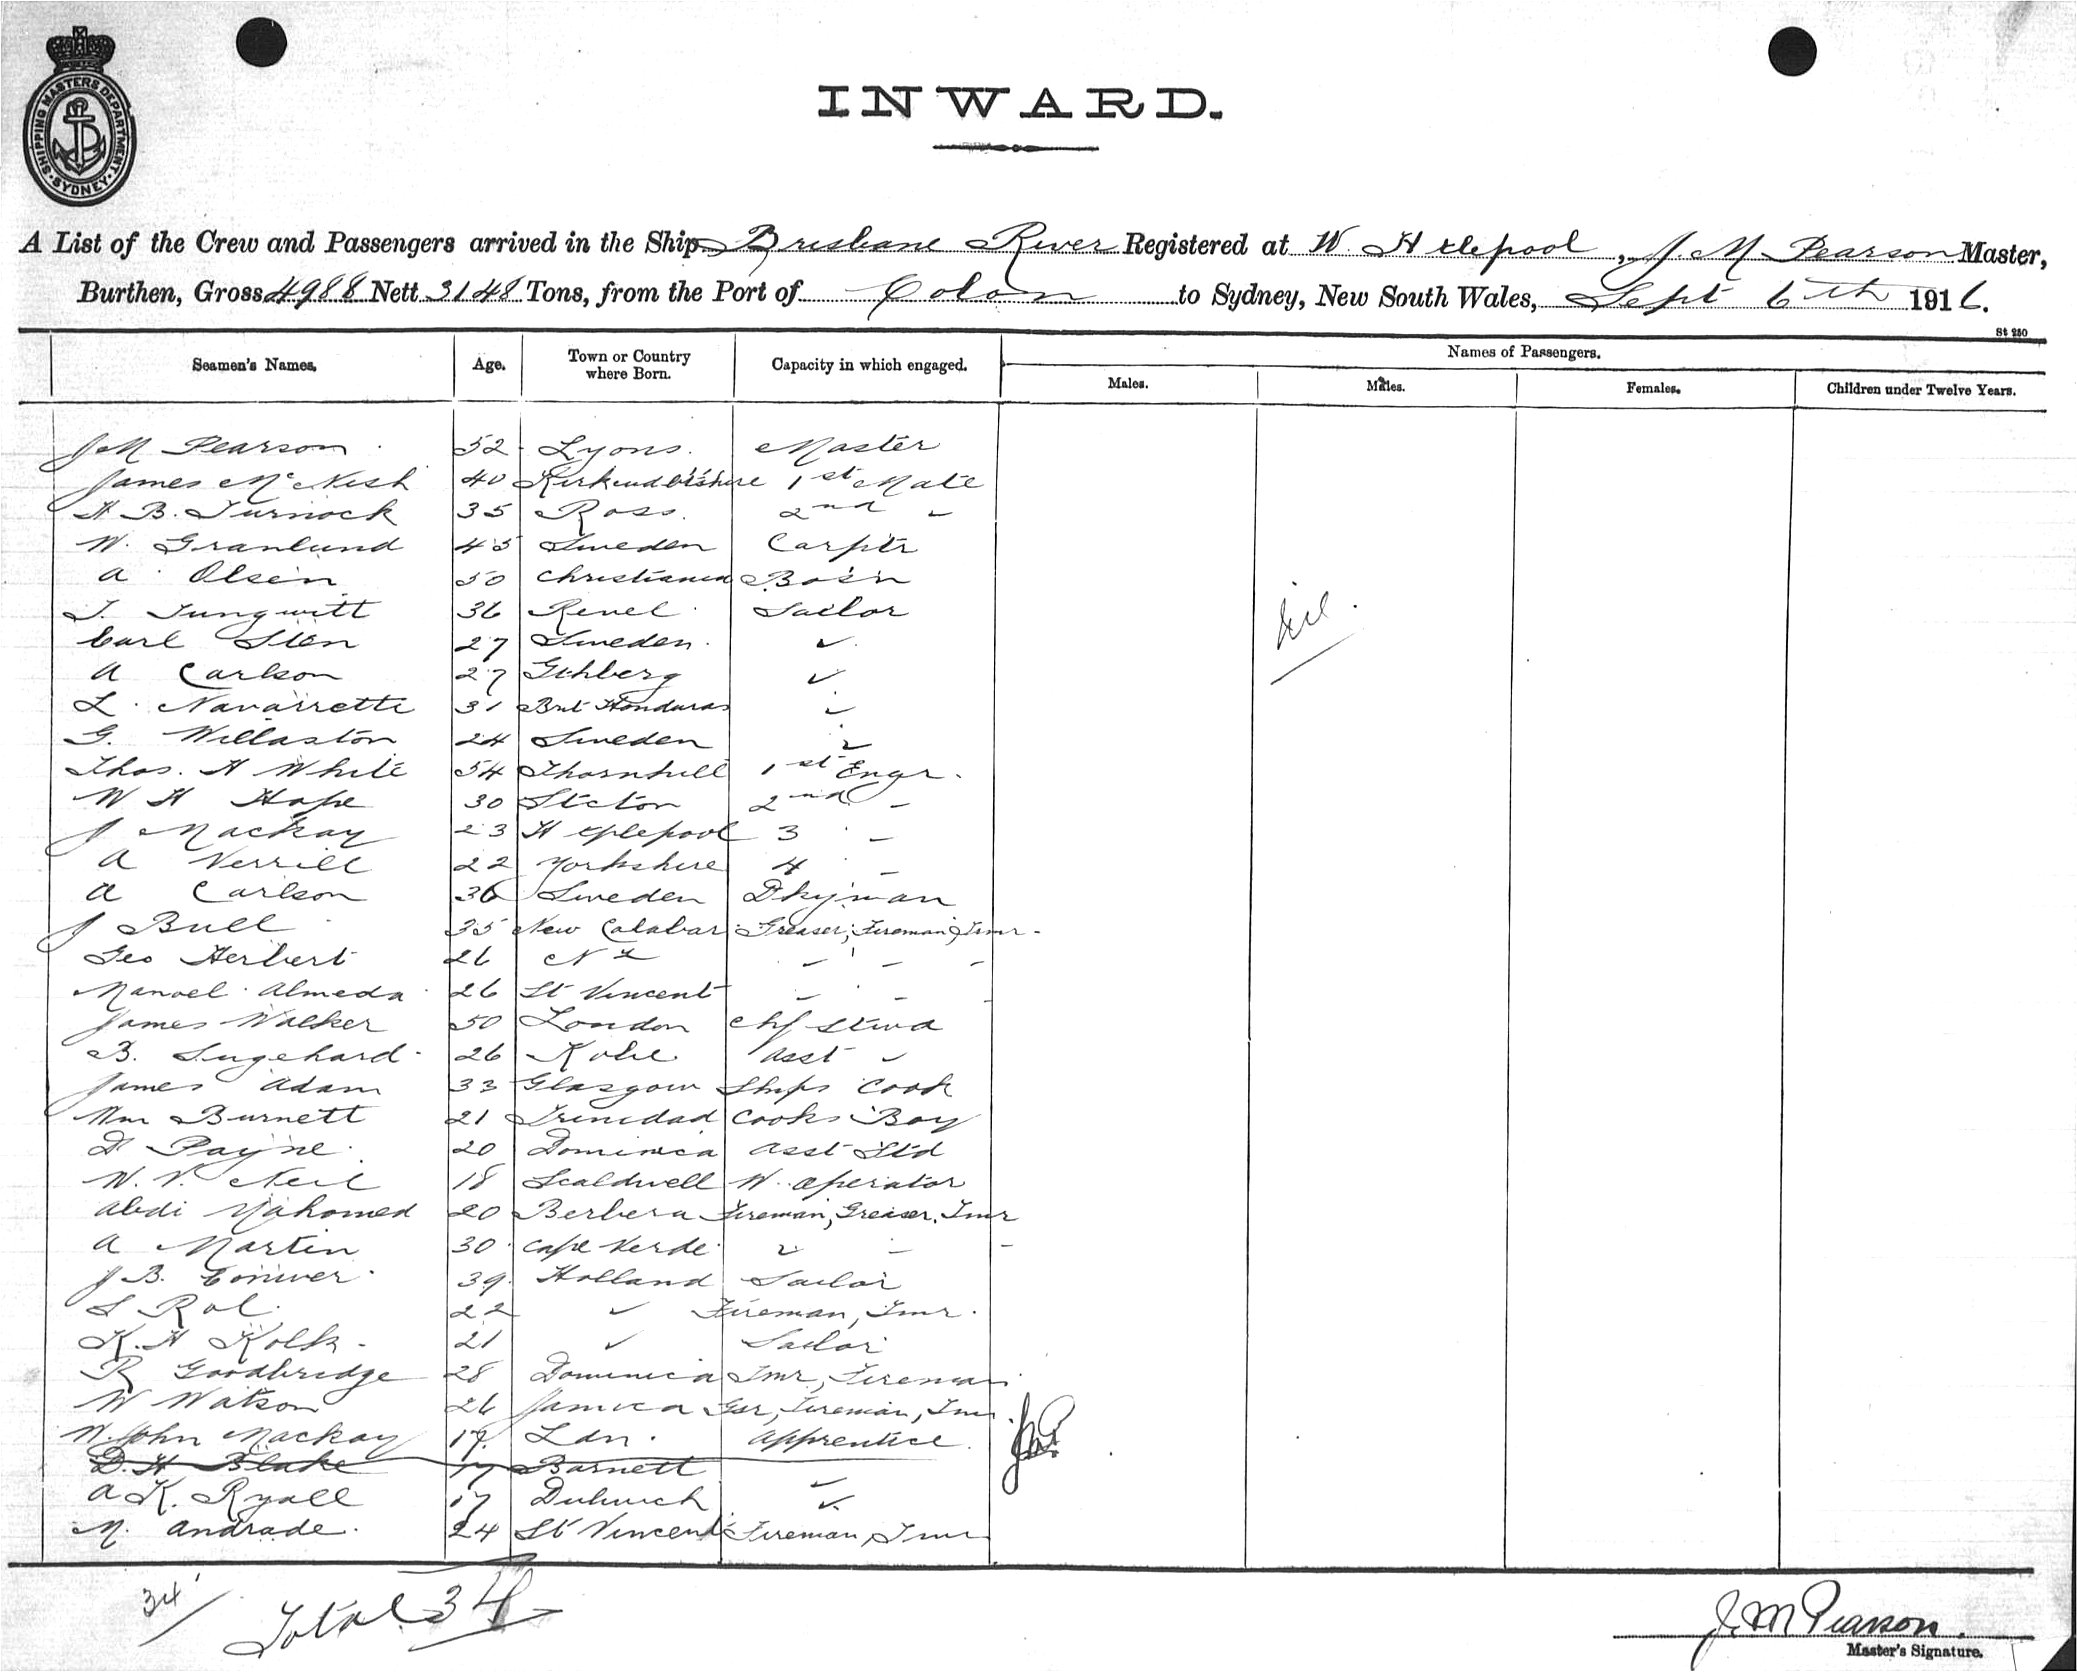 SHIPPING MASTERS DEPARTMENT · SYDNEY ·
INWARD.
A List of the Crew and Passengers arrived in the Ship Brisbane River Registered at W. Htlepool, J. M Pearson Master,
Burthen, Gross 4988 Nett 3148 Tons, from the Port of Colon to Sydney, New South Wales, Sept 6th 1916.
St 250
Seamen's Names. Age. Town or Country where Born. Capacity in which engaged. Names of Passengers.
Males. Males. Females. Children under Twelve Years.
J M Pearson 52 Lyons. Master
James McNish 40 1st Mate
H B. Turnock 35 Ross. 2nd "
W. Granlund 45 Sweden Carptr
A Olsen 50 Christiania Bosn
J. Jungwitt 36 Revel Sailor
Carl Sten 27 Sweden. "
A Carlson 27 Gthberg "
L. Navarrette 31 Brit Honduras "
G. Willaston 24 Sweden "
Thos. H White 54 Thornhill 1st Engr.
W H Hope 30 2nd "
J Mackay 23 3 "
A Verrill 22 Yorkshire 4 "
A Carlson 36 Sweden Dkyman
J Bull 35 New Calabar Greaser, Fireman, Tmr.
Geo Herbert 26 " " "
Manoel Almeda 26 St Vincent " " "
James Walker 50 London Chf Stwd
B. 26 Kobe Asst "
James Adam 33 Glasgow Ships Cook
Wm Burnett 21 Trinidad Cooks Boy
D Payne 20 Dominica Asst Std
W. V. Neil 18 Scaldwell W. Operator
Abdi Mahomed 20 Berbera Fireman, Greaser, Tmr
A Martin 30 Cape Verde " " "
J B. 39 Holland Sailor
S Rol 22 " Fireman, Tmr.
K. H Kolk 21 " Sailor
R Goodbridge 28 Dominica Tmr, Fireman
W Watson 26 Jamica Gsr, Fireman, Tmr.
W. John Mackay 17 Ldn. Apprentice
D. H Blake 17 Barnett "
A K. Ryall 17 Dulwich "
M. Andrade 24 St Vincent Fireman, Tmr
Nil.
34
Total 34
J. M Pearson.
Master's Signature.